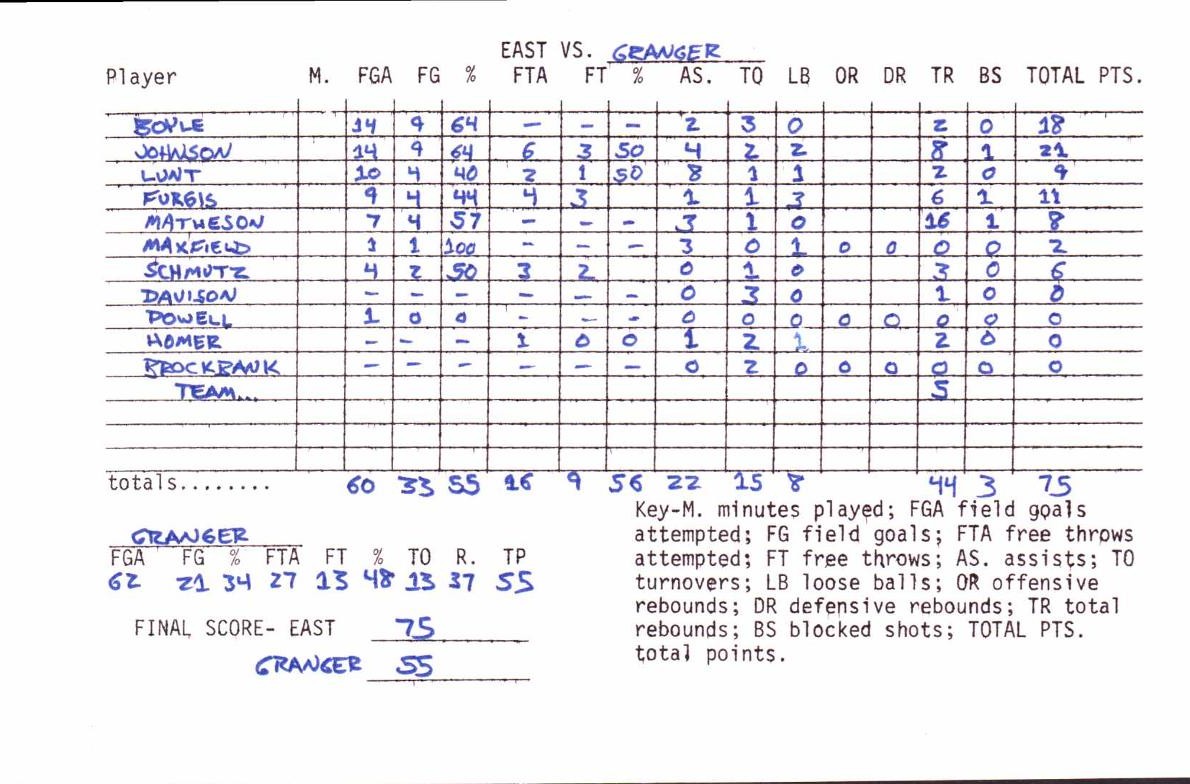 EAST VS. GRANGER
Player M. FGA FG % FTA FT % AS. TO LB OR DR TR BS TOTAL PTS.
BOYLE 14 9 64 - - - 2 3 0 2 0 18
JOHNSON 14 9 64 6 3 50 4 2 2 8 1 21
LUNT 10 4 40 2 1 50 8 1 1 2 0 9
FURGIS 9 4 44 4 3 1 1 3 6 1 11
MATHESON 7 4 57 - - - 3 1 0 16 1 8
MAXFIELD 1 1 100 - - - 3 0 1 0 0 0 0 2
SCHMUTZ 4 2 50 3 2 0 1 0 3 0 6
DAVISON - - - - - - 0 3 0 1 0 0
POWELL 1 0 0 - - - 0 0 0 0 0 0 0 0
HOMER - - - 1 0 0 1 2 1 2 0 0
BROCKBANK - - - - - - 0 2 0 0 0 0 0 0
TEAM... 5
totals........ 60 33 55 16 9 56 22 15 8 44 3 75
Key-M. minutes played; FGA field goals
attempted; FG field goals; FTA free throws
attempted; FT free throws; AS. assists; TO
turnovers; LB loose balls; OR offensive
rebounds; DR defensive rebounds; TR total
rebounds; BS blocked shots; TOTAL PTS.
total points.
GRANGER
FGA FG % FTA FT % TO R. TP
62 21 34 27 13 48 13 37 55
FINAL SCORE- EAST 75
GRANGER 55